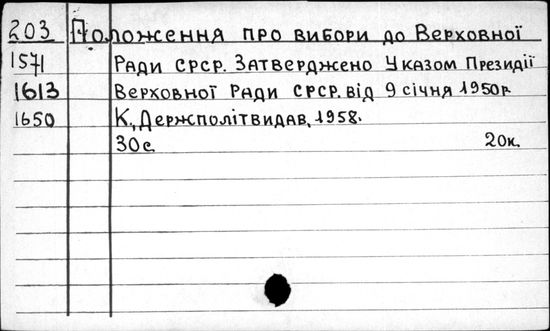 203 Положення про вибори до Верховної
1571 Ради СРСР. Затверджено Указом Президії
1613 Верховної Ради СРСР від 9 січня 1950р.
1650 К., Держполітвидав, 1958.
30с. 20к.